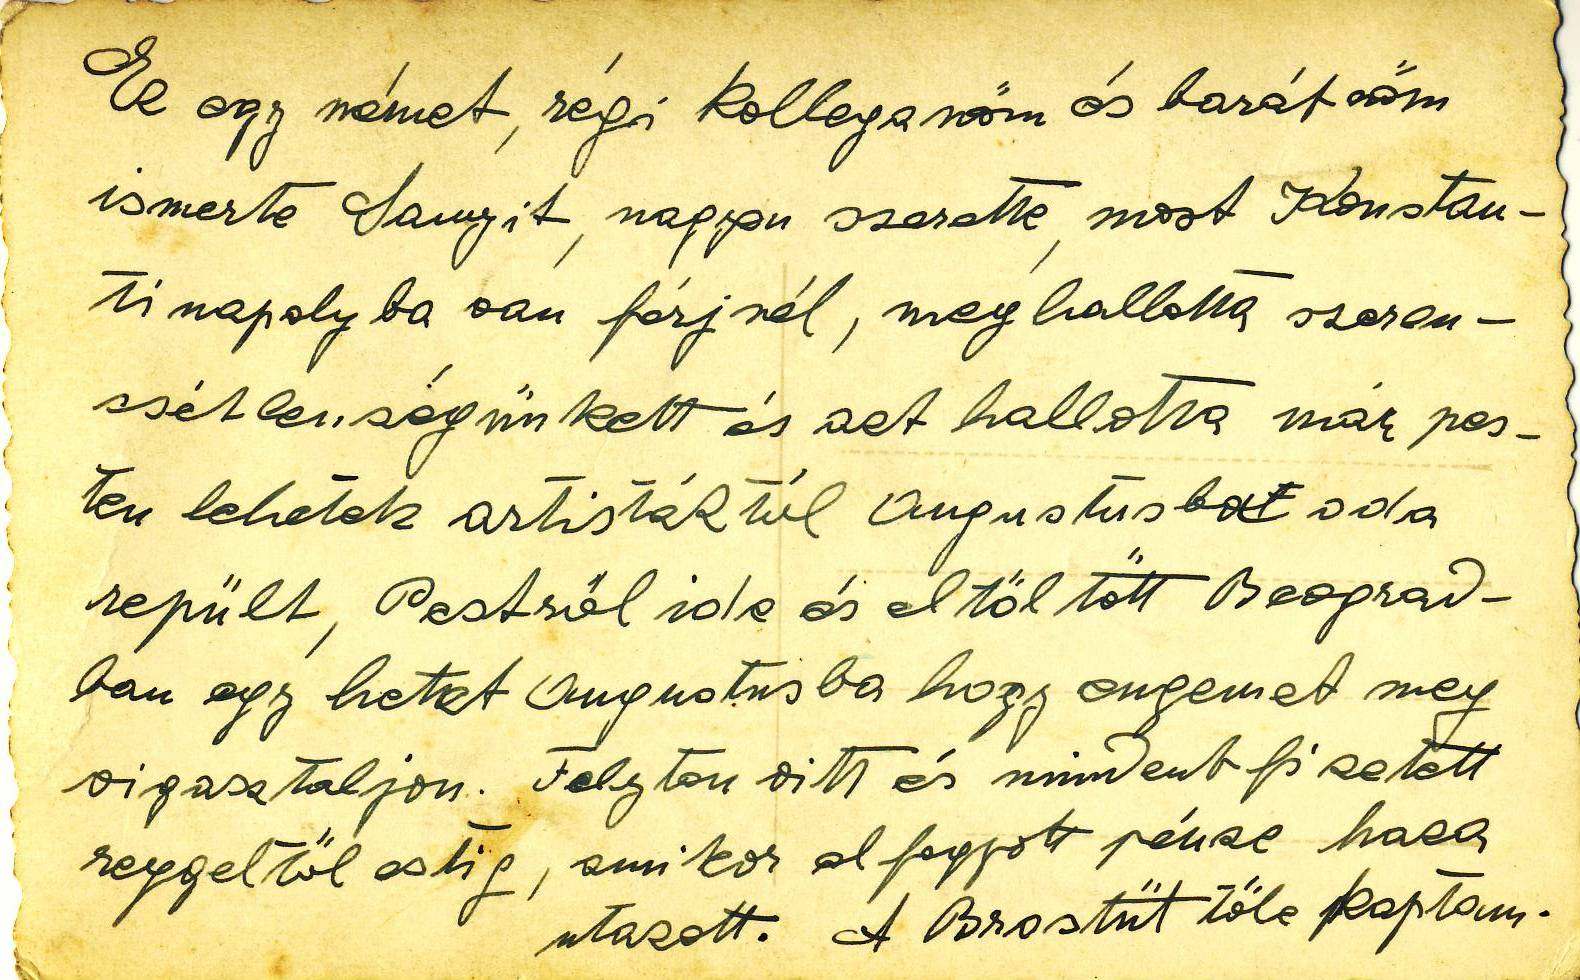 Ez egy német, régi kolleganőm és barátnőm
ismerte Sanyit, nagyon szerette, most Konstan-
tinapolyba van férjnél, meghallotta szeren-
csétlenségünkett és azt hallotta már pes-
ten lehetek artistáktól Augustusbat oda
repült, Pestről ide és eltöltött Beograd-
ban egy hetet Augustusba hogy engemet meg
vigasztaljon. Felyton vitt és mindent fizetett
reggeltől estig, amikor elfogyott pénze haza
utazott. A Brostüt tőle kaptam.